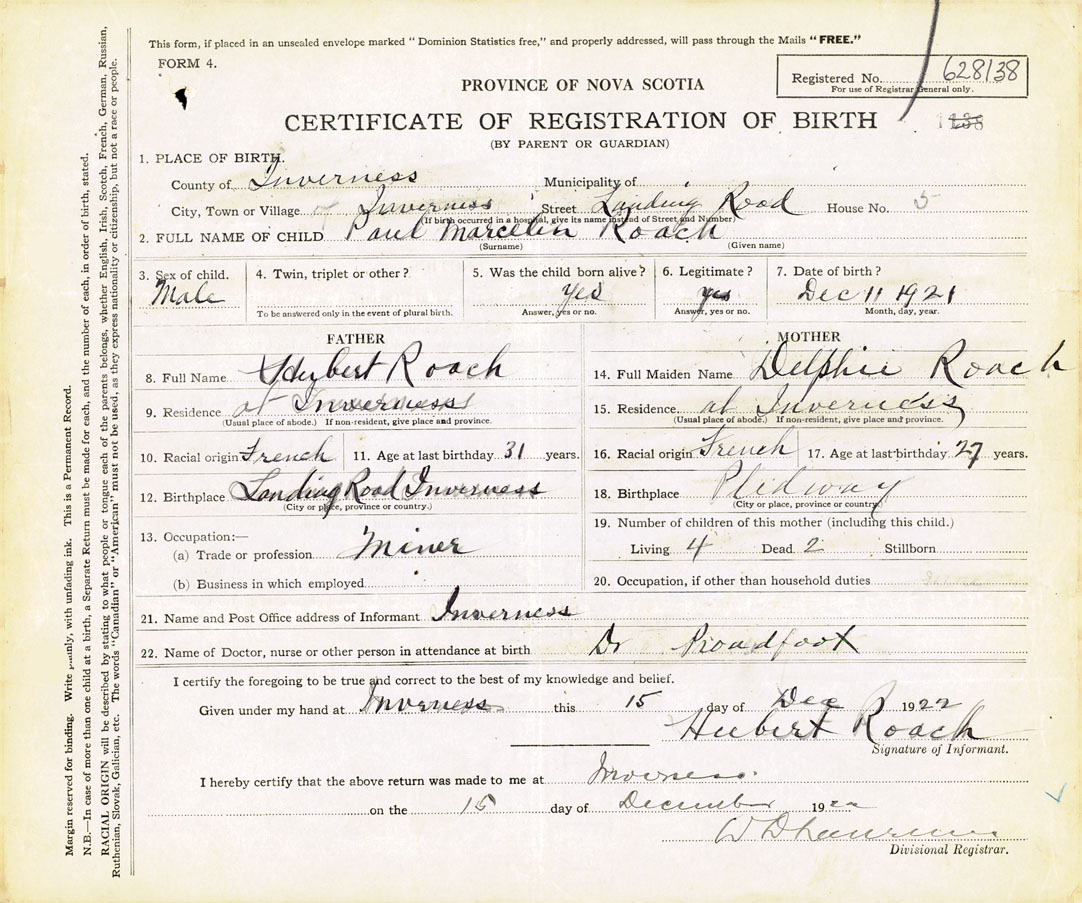 This form, if placed in an unsealed envelope marked "Dominion Statistics free," and properly addressed, will pass through the Mails "FREE."
FORM 4.
Registered No. 628138
For use of Registrar General only.
PROVINCE OF NOVA SCOTIA
CERTIFICATE OF REGISTRATION OF BIRTH
(BY PARENT OR GUARDIAN)
1. PLACE OF BIRTH.
County of Inverness Municipality of
City, Town or Village of Inverness Street Landing Road House No. 5
(If birth occurred in a hospital, give its name instead of Street and Number)
2. FULL NAME OF CHILD Paul Marcelin Roach
(Surname) (Given name)
3. Sex of child. 4. Twin, triplet or other? 5. Was the child born alive? 6. Legitimate? 7. Date of birth?
Male Yes yes Dec 11 1921
To be answered only in the event of plural birth. Answer, yes or no. Answer, yes or no. Month, day, year.
FATHER MOTHER
8. Full Name Hubert Roach 14. Full Maiden Name Delphie Roach
9. Residence at Inverness 15. Residence at Inverness
(Usual place of abode.) If non-resident, give place and province. (Usual place of abode.) If non-resident, give place and province.
10. Racial origin French 11. Age at last birthday 31 years. 16. Racial origin French 17. Age at last birthday 27 years.
12. Birthplace Landing Road Inverness 18. Birthplace
(City or place, province or country.) (City or place, province or country.)
19. Number of children of this mother (including this child.)
13. Occupation:—
(a) Trade or profession Miner Living 4 Dead 2 Stillborn
(b) Business in which employed 20. Occupation, if other than household duties
21. Name and Post Office address of Informant Inverness
22. Name of Doctor, nurse or other person in attendance at birth Dr Proudfoot
I certify the foregoing to be true and correct to the best of my knowledge and belief.
Given under my hand at Inverness this 15 day of Dec 1922
Hubert Roach
Signature of Informant.
I hereby certify that the above return was made to me at Inverness
on the 15 day of December 1922
Divisional Registrar.
Margin reserved for binding. Write plainly, with unfading ink. This is a Permanent Record.
N.B.—In case of more than one child at a birth, a Separate Return must be made for each, and the number of each, in order of birth, stated.
RACIAL ORIGIN will be described by stating to what people or tongue each of the parents belongs, whether English, Irish, Scotch, French, German, Russian,
Ruthenian, Slovak, Galician, etc. The words "Canadian" or "American" must not be used, as they express nationality or citizenship, but not a race or people.